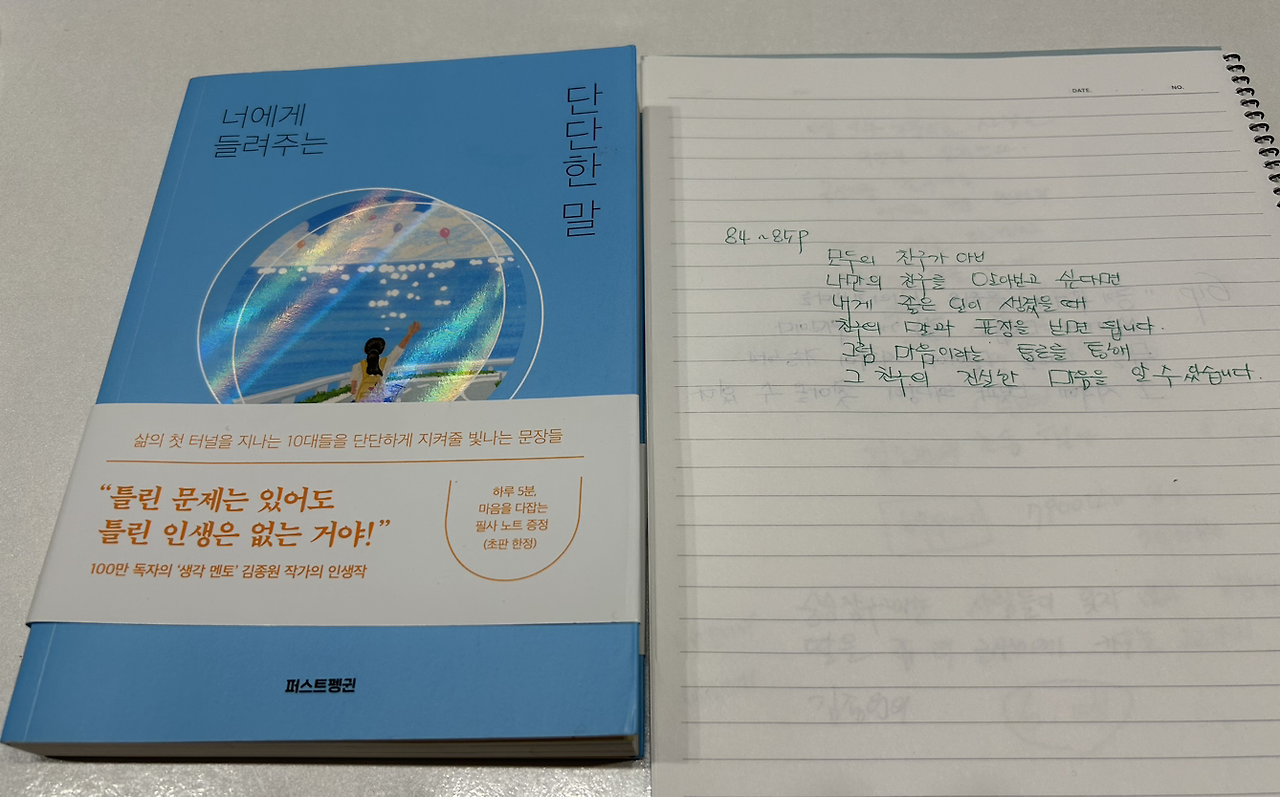 너에게
들려주는
단단한 말
삶의 첫 터널을 지나는 10대들을 단단하게 지켜줄 빛나는 문장들
“틀린 문제는 있어도
틀린 인생은 없는 거야!”
100만 독자의 ‘생각 멘토’ 김종원 작가의 인생작
하루 5분,
마음을 다잡는
필사 노트 증정
(초판 한정)
퍼스트펭귄
DATE. NO.
84 ~ 85p
모두의 친구가 아닌
나만의 친구를 알아보고 싶다면
내게 좋은 일이 생겼을 때
친구의 말과 표정을 보면 됩니다.
그럼 마음이라는 통로를 통해
그 친구의 진실한 마음을 알 수 있습니다.